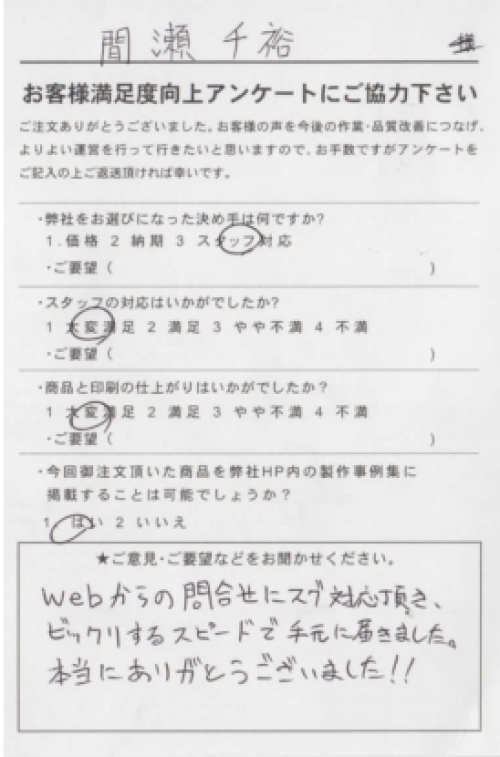 間瀬千裕 様
お客様満足度向上アンケートにご協力下さい
ご注文ありがとうございました。お客様の声を今後の作業・品質改善につなげ、
よりよい運営を行って行きたいと思いますので、お手数ですがアンケートを
ご記入の上ご返送頂ければ幸いです。
・弊社をお選びになった決め手は何ですか?
1.価格 2 納期 3 スタッフ対応
・ご要望 ( )
・スタッフの対応はいかがでしたか?
1 大変満足 2 満足 3 やや不満 4 不満
・ご要望 ( )
・商品と印刷の仕上がりはいかがでしたか?
1 大変満足 2 満足 3 やや不満 4 不満
・ご要望 ( )
・今回御注文頂いた商品を弊社HP内の製作事例集に
掲載することは可能でしょうか?
1 はい 2 いいえ
★ご意見・ご要望などをお聞かせください。
Webからの問合せにスグ対応頂き、
ビックリするスピードで手元に届きました。
本当にありがとうございました!!